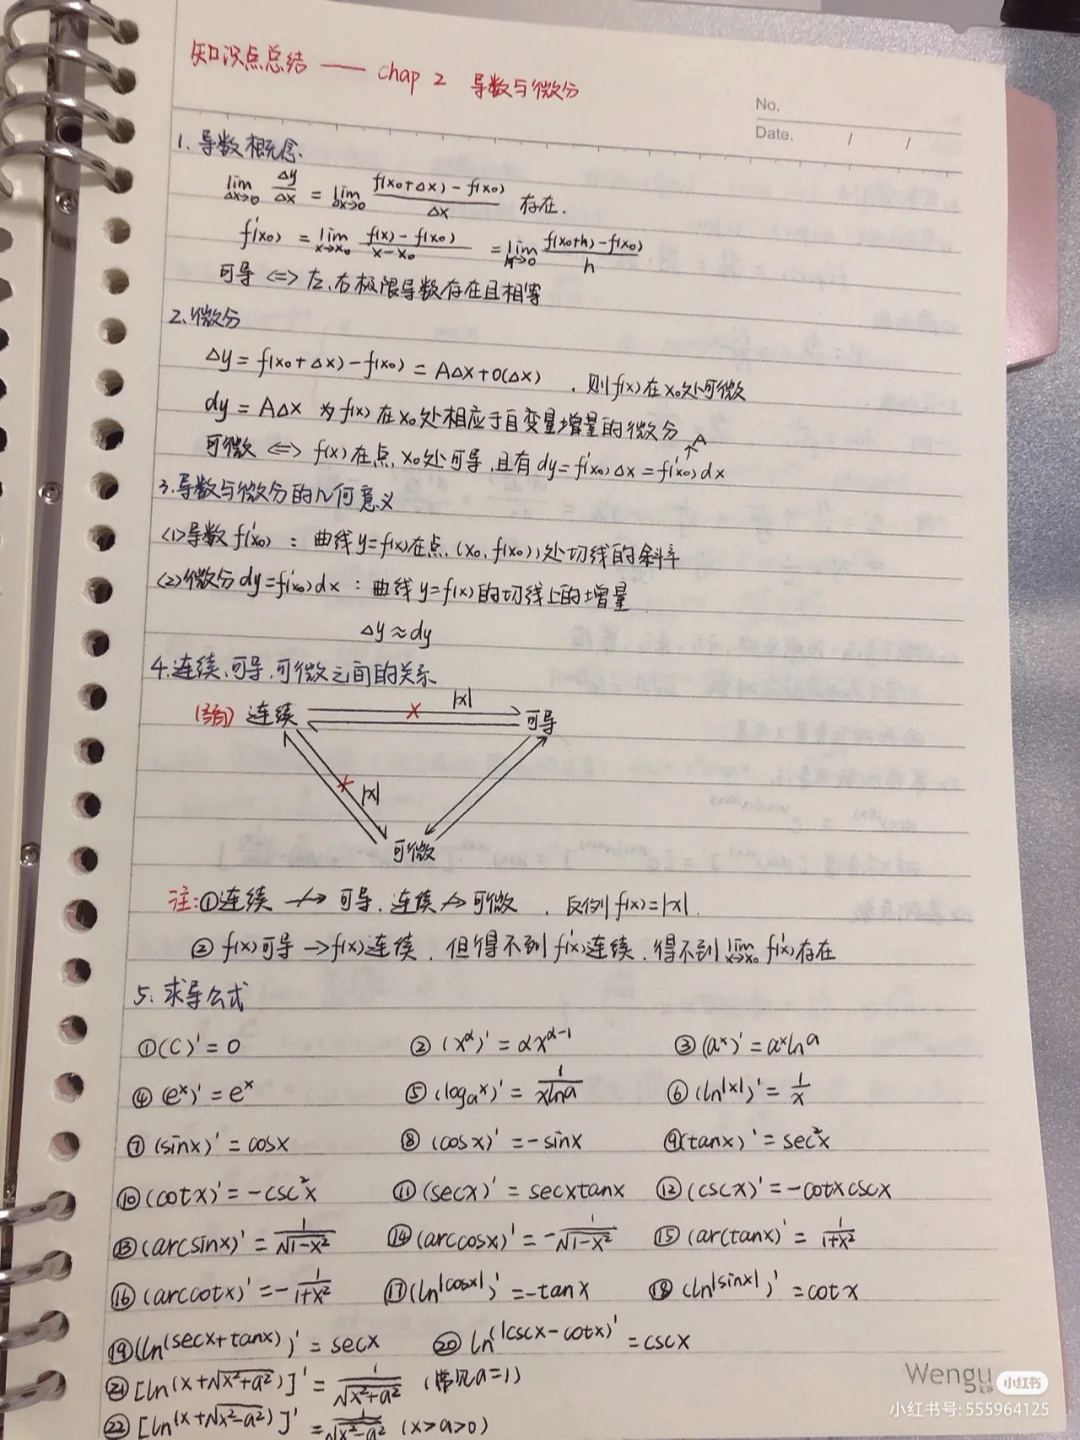 知识点总结 —— chap 2 导数与微分
No.
Date. / /
1. 导数概念.
lim Δx→0 Δy/Δx = lim Δx→0 (f(x₀+Δx)-f(x₀))/Δx 存在.
f'(x₀) = lim x→x₀ (f(x)-f(x₀))/(x-x₀) = lim h→0 (f(x₀+h)-f(x₀))/h
可导 <=> 左、右极限导数存在且相等
2. 微分
Δy = f(x₀+Δx)-f(x₀) = AΔx+o(Δx) , 则f(x)在x₀处可微
dy = AΔx 为f(x)在x₀处相应于自变量增量的微分
可微 <=> f(x)在点x₀处可导,且有dy=f'(x₀)Δx=f'(x₀)dx ↗A
3. 导数与微分的几何意义
(1)导数f'(x₀) : 曲线y=f(x)在点(x₀,f(x₀))处切线的斜率
(2)微分dy=f'(x₀)dx : 曲线y=f(x)的切线上的增量
Δy≈dy
4. 连续、可导、可微之间的关系
连续 × |x| 可导
× |x|
可微
注:①连续 ↛ 可导,连续↛可微 , 反例f(x)=|x|.
② f(x)可导→f(x)连续,但得不到f'(x)连续,得不到lim x→x₀ f'(x)存在
5. 求导公式
①(C)'=0 ②(x^α)'=αx^(α-1) ③(a^x)'=a^x ln a
④(e^x)'=e^x ⑤(log_a x)'=1/(xlna) ⑥(ln|x|)'=1/x
⑦(sinx)'=cosx ⑧(cosx)'=-sinx ⑨(tanx)'=sec²x
⑩(cotx)'=-csc²x ⑪(secx)'=secxtanx ⑫(cscx)'=-cotxcscx
⑬(arcsinx)'=1/√(1-x²) ⑭(arccosx)'=-1/√(1-x²) ⑮(arctanx)'=1/(1+x²)
⑯(arccotx)'=-1/(1+x²) ⑰(ln|cosx|)'=-tanx ⑱(ln|sinx|)'=cotx
⑲(ln(secx+tanx))'=secx ⑳ln(|cscx-cotx)'=cscx
㉑[ln(x+√(x²+a²))]'=1/√(x²+a²) (常见a=1)
㉒[ln(x+√(x²-a²)]'=1/√(x²-a²) (x>a>0)
Wengu 文谷
小红书
小红书号:555964125